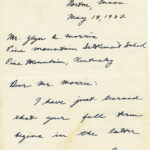 Boston, Mass.
May 14, 1932
Mr. Glyn A. Morris
Pine Mountain Settlement School
Pine Mountain, Kentucky
Dear Mr. Morris:
I have just learned
that your fall term
begins in the latter